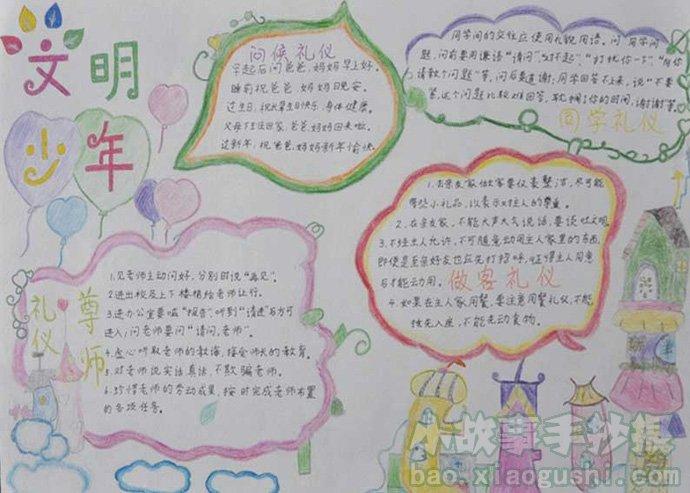 文明
少年
问候礼仪
早起后问爸爸、妈妈早上好。
睡前祝爸爸、妈妈晚安。
过生日,祝大寿生日快乐、身体健康。
父母下班回家,爸爸、妈妈回来啦。
过新年,祝爸爸、妈妈新年愉快。
同学间的交往应使用礼貌用语。问同学问
题,问前要用谦语“请问”、“对不起”、“打扰你一下”、“向你
请教个问题”等,问后要道谢;同学回答不上来,说“不要
紧,这个问题比较难回答,耽搁了你的时间,谢谢”等。
同学礼仪
尊师
礼仪
1.见老师主动问好,分别时说“再见”。
2.进出校及上下楼梯给老师让行。
3.进办公室要喊“报告”,听到“请进”后方可
进入;问老师要问“请问,老师”。
4.虚心听取老师的教诲,接受师长的教育。
5.对老师说实话真话,不欺骗老师。
6.珍惜老师的劳动成果,按时完成老师布置
的各项任务。
1.去亲友家做客要仪表整洁,尽可能
带些小礼品,以表示对主人的尊重。
2.在亲友家,不能大声大气说话,要谈吐文明。
3.不经主人允许,不可随意动用主人家里的东西,
即使是至亲好友也应先打招呼,征得主人同意
后才能去动用。
做客礼仪
4.如果在主人家用餐,要注意用餐礼仪,不能
抢先入座,不能先动食物。
小故事手抄报
bao.xiaogushi.com